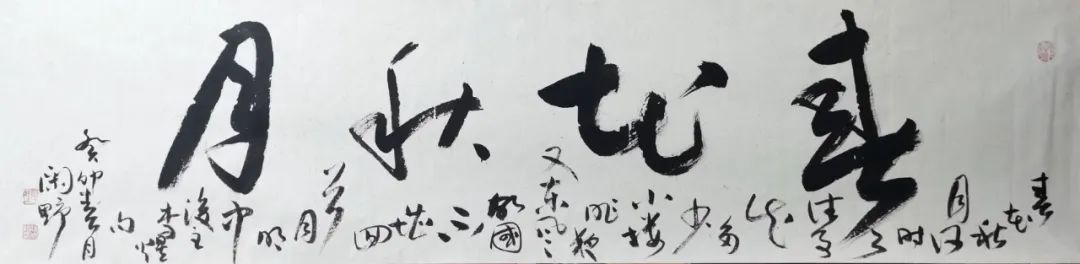 春花秋月
春花秋月何时了往事知多少小楼昨夜又东风故國不堪回首月明中
後主李煜句
癸卯春月
闲野